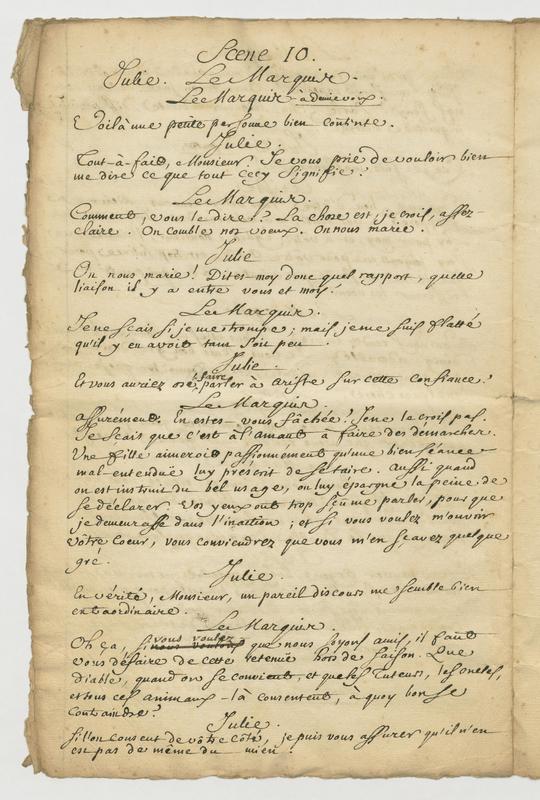 Scene 10.
Julie. Le Marquis.
Le Marquis à demie voix.
Voilà une petite personne bien contente.
Julie.
Tout-à-fait, Monsieur. Je vous prie de vouloir bien
me dire ce que tout cecy signifie?
Le Marquis.
Comment, vous le dire!? La chose est, je crois, assez
claire. On comble nos voeux. On nous marie.
Julie
On nous marie! Dites-moy donc quel rapport, quelle
liaison il y a entre vous et moy?
Le Marquis.
Je ne scais si je me trompe; mais je me suis flatté
qu'il y en avoit tant soit peu.
Julie.
Et vous auriez osé faire parler à Ariste sur cette confiance?
Le Marquis.
assurément. En estes-vous fâchée? Je ne le crois pas.
Je scais que c'est à l'amant à faire des démarches.
Une fille aimeroit passionnément qu'une bienséance
mal-entenduë luy préscrit de se taire. Aussi quand
on est instruit du bel usage, on luy épargne la peine de
se déclarer. Vos yeux ont trop sçu me parler, pour que
je demeurasse dans l'inaction; et si vous voulez m'ouvrir
vôtre coeur, vous conviendrez que vous m'en sçavez quelque
gré.
Julie.
En vérité, Monsieur, un pareil discours me semble bien
extraordinaire.
Le Marquis.
Oh ça, si vous voulez que nous soyons amis, il faut
vous défaire de cette retenuë hors de saison. Que
diable, quand on se convient, et que les Tuteurs, les oncles,
et tous ces animaux-là consentent, à quoy bon se
contraindre?
Julie.
Si l'on consent de vôtre côté, je puis vous assurer qu'il n'en
est pas de même du mien.